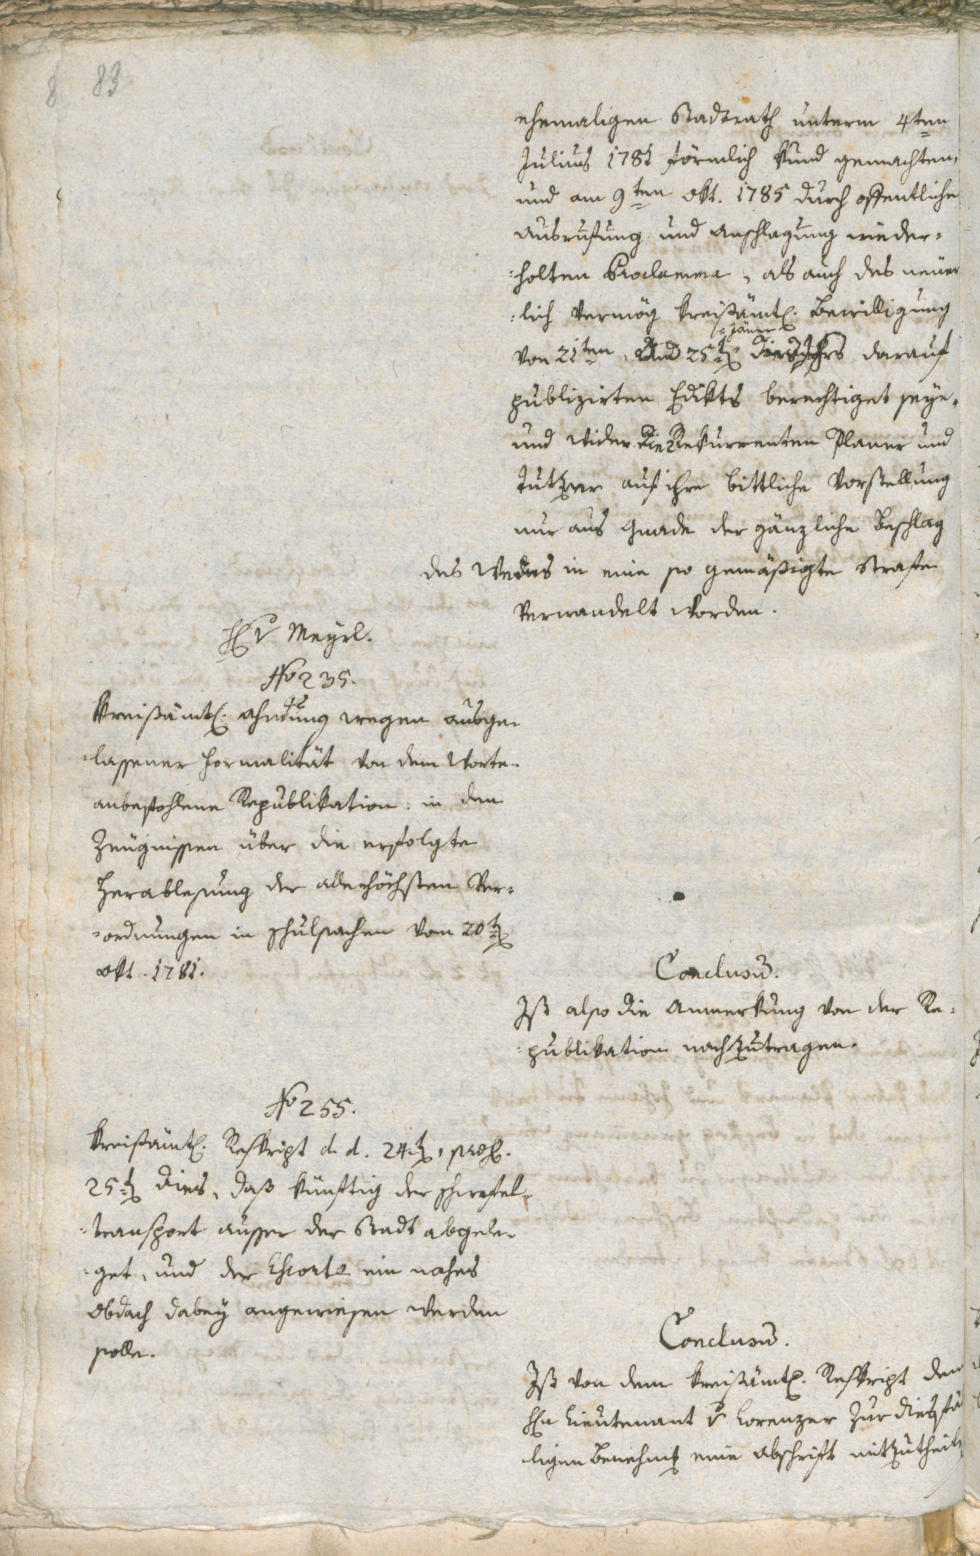 83
ehemaligen Stadtrath unterm 4ten
Julius 1781 förmlich kund gemachten,
und am 9ten Okt. 1785 durch offentliche
Ausrufung und Anschlagung wieder-
:holten Proclama, als auch des neuer
:lich vermög kreißämtl. Bewilligung
von 21ten, und 25ten Jäner dies Jahrs darauf
publizirten Edikts berechtiget seye,
und wider die Rekurrenten Planer und
Tutzer auf ihre bittliche Vorstellung
nur aus Gnade der gänzliche Beschlag
des in eine so gemäßigte Strafe
verwandelt worden.
H v Meyrl.
No 235.
Kreißämtl. Ahndung wegen ausge-
:lassener Formalität von dem Worte
anbefohlene Republikation: in den
Zeugnissen über die erfolgte
Herablesung der allerhöchsten Ver-
:ordnungen in Schulsachen vom 20ten
Okt. 1781.
Conclusum.
Ist also die Anmerkung von der Re-
:publikation nachzutragen.
No 255.
Kreißämtl. Reskript d. d. 24ten, præs.
25ten dies, daß künftig der Schießpulver-
:transport ausser der Stadt abgele-
:get, und der Escorte ein nahes
Obdach dabey angewiesen werden
solle.
Conclusum.
Ist von dem kreißämtl. Reskript dem
Hn Lieutenant v Lorenzer zur diesfäl
ligen Benehmung eine Abschrift mitzutheilen